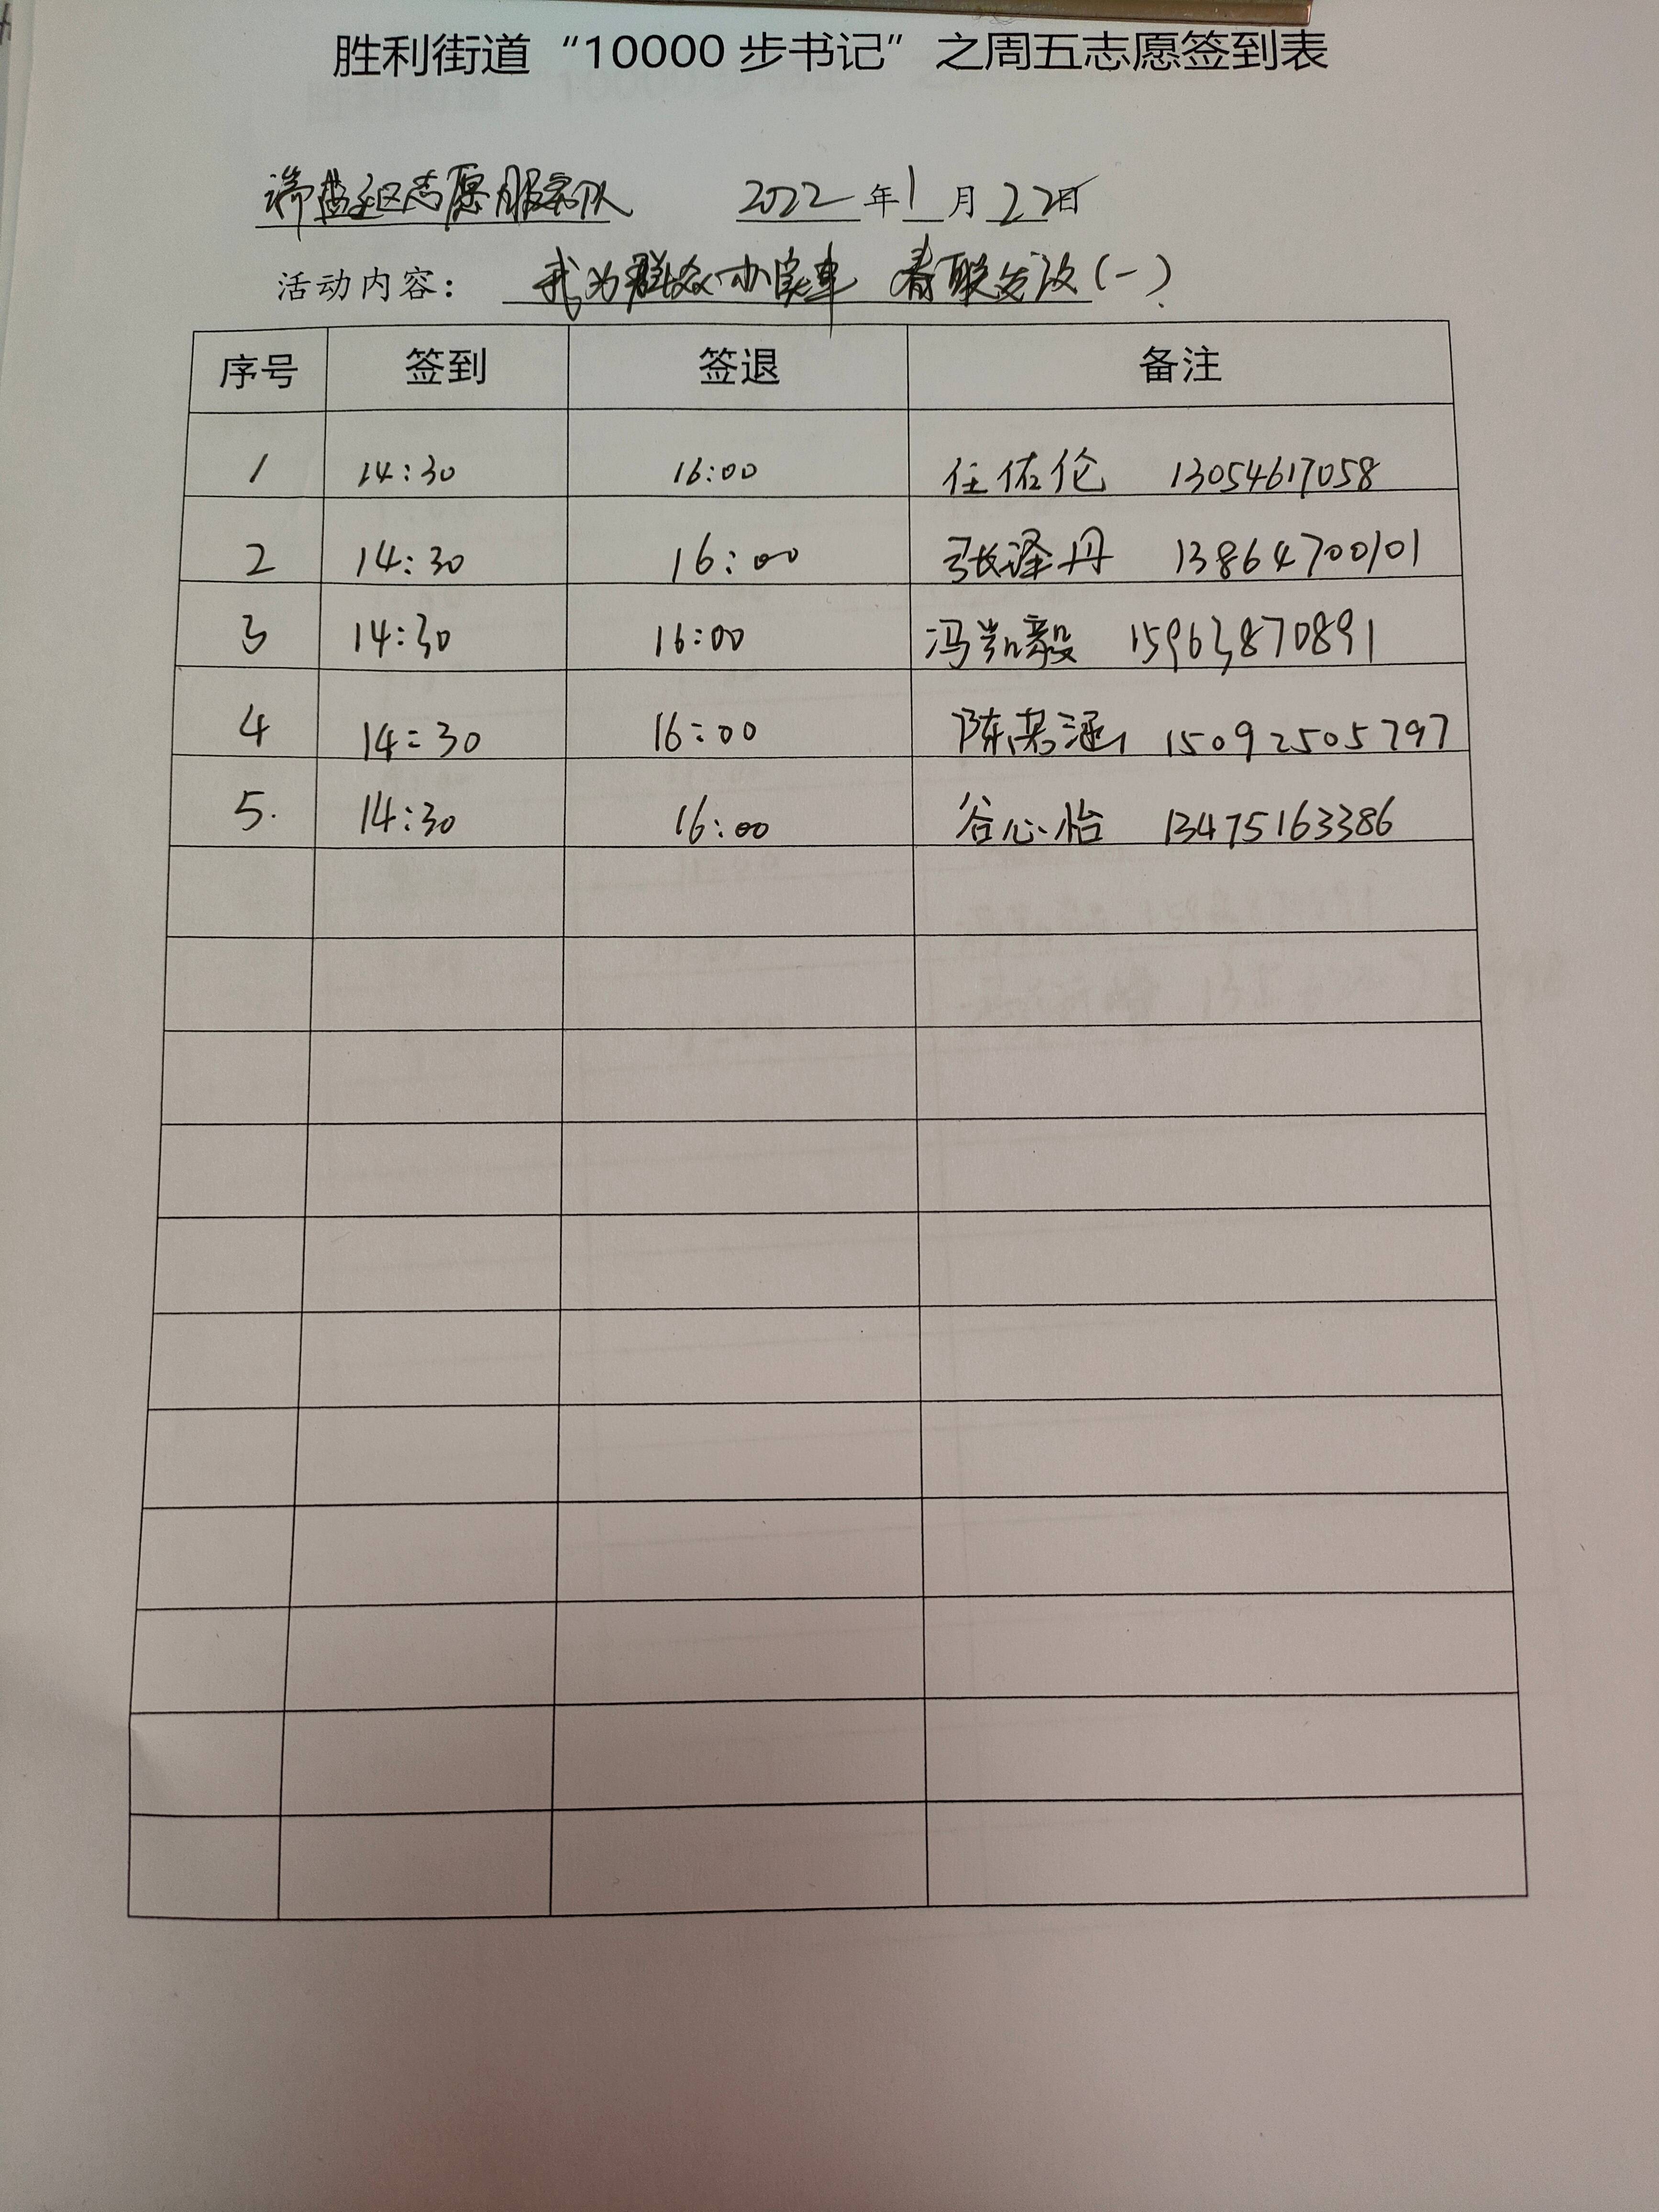 胜利街道“10000步书记”之周五志愿签到表
社区志愿服务队 2022年1月22日
活动内容： 我为群众办实事 春联发放(一)
序号 签到 签退 备注
1 14:30 16:00 任佑伦 13054617058
2 14:30 16:00 张泽丹 13864700101
3 14:30 16:00 冯凯毅 15963870891
4 14:30 16:00 陈若涵 15092505797
5. 14:30 16:00 谷心怡 13475163386